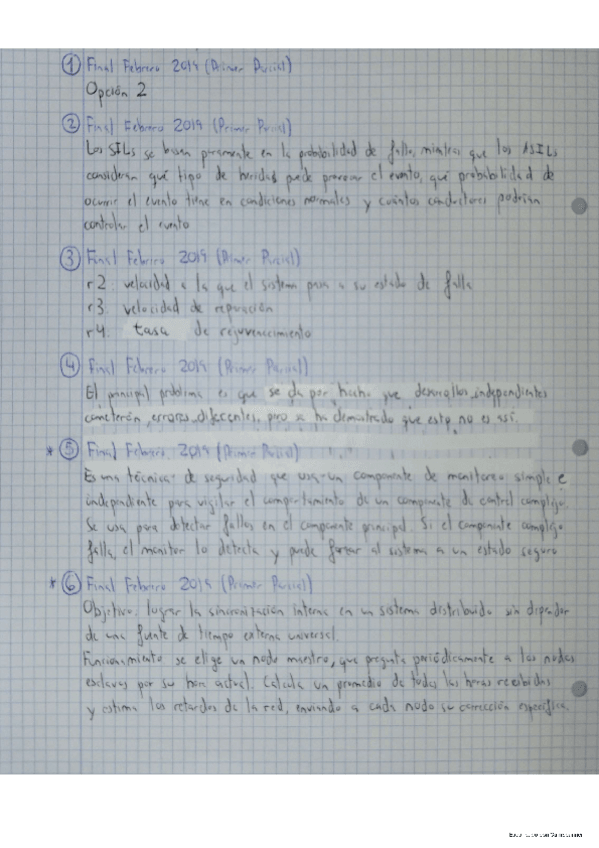 ① Final Febrero 2019 (Primer Parcial)
Opción 2
② Final Febrero 2019 (Primer Parcial)
Los SILs se basan puramente en la probabilidad de falla, mientras que los ASILs
consideran qué tipo de heridas puede provocar el evento, qué probabilidad de
ocurrir el evento tiene en condiciones normales y cuántos conductores podrían
controlar el evento
③ Final Febrero 2019 (Primer Parcial)
r2: velocidad a la que el sistema pasa a su estado de falla
r3. velocidad de reparación
r4. tasa de rejuvenecimiento
④ Final Febrero 2019 (Primer Parcial)
El principal problema es que se da por hecho que desarrollos independientes
cometerán errores diferentes, pero se ha demostrado que esto no es así.
* ⑤ Final Febrero 2019 (Primer Parcial)
Es una técnica de seguridad que usa un componente de monitoreo simple e
independiente para vigilar el comportamiento de un componente de control complejo.
Se usa para detectar fallas en el componente principal. Si el componente complejo
falla, el monitor lo detecta y puede forzar al sistema a un estado seguro
* ⑥ Final Febrero 2019 (Primer Parcial)
Objetivo: lograr la sincronización interna en un sistema distribuido sin depender
de una fuente de tiempo externa universal.
Funcionamiento se elige un nodo maestro, que pregunta periódicamente a los nodos
esclavos por su hora actual. Calcula un promedio de todas las horas recibidas
y estima los retardos de la red, enviando a cada nodo su corrección específica